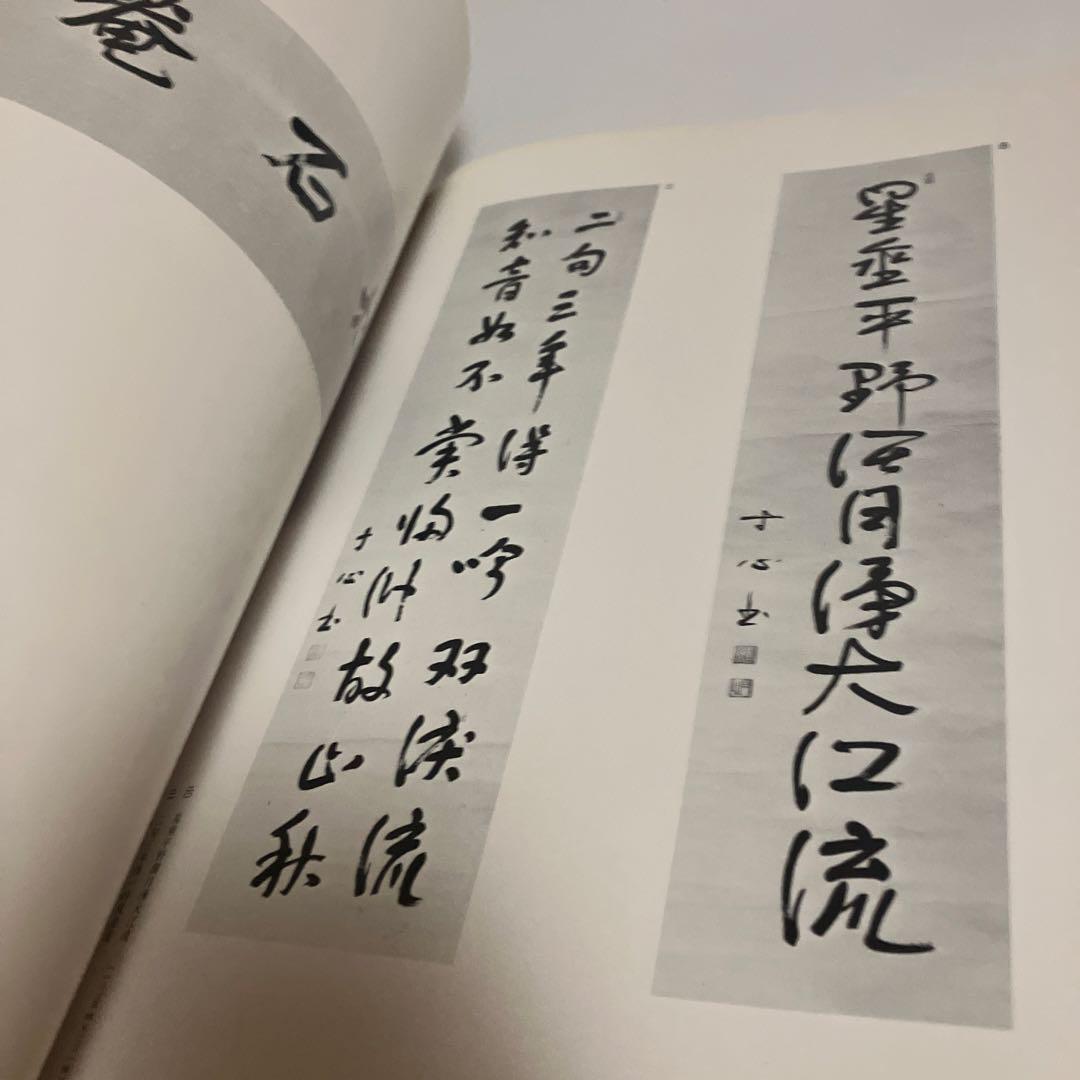 星垂平野濶月湧大江流
寸心書
二句三年得一吟双涙流
知音如不賞歸卧故山秋
寸心書
庵